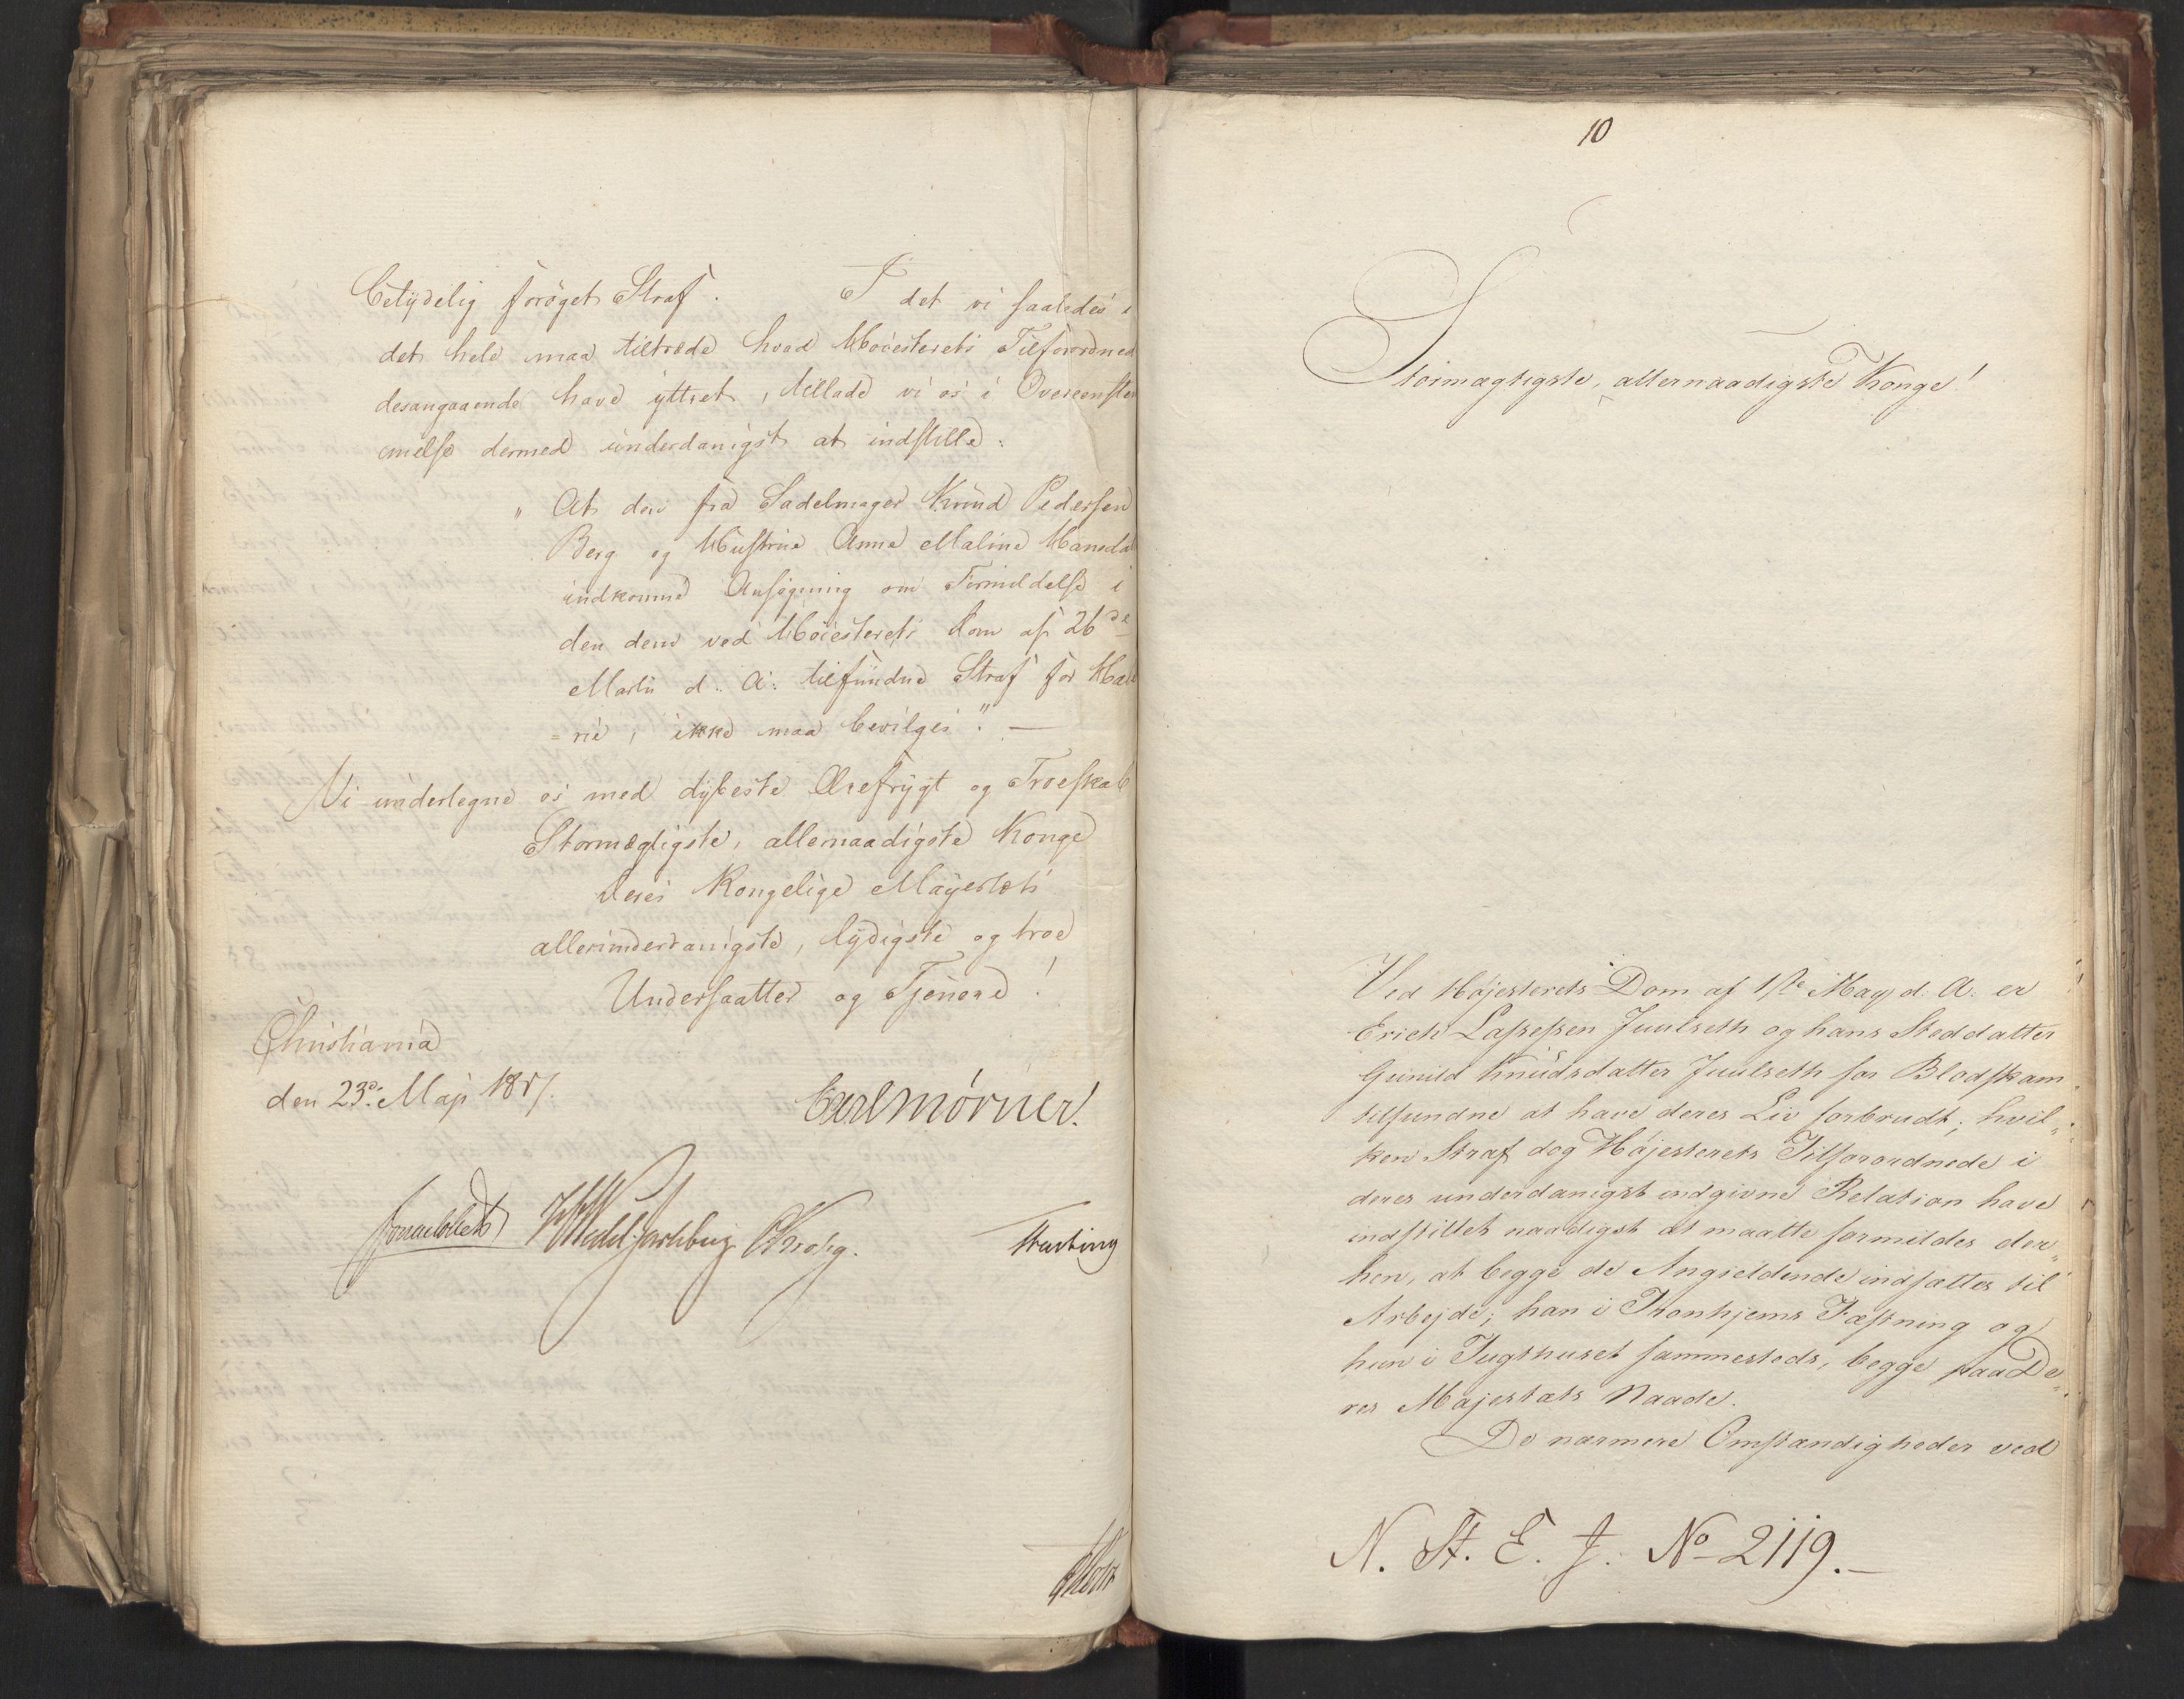 betydelig forøget Straf. I det vi saaledes i
det hele maa tiltræde hvad Høiesterets Tilforordned
desangaaende have yttret, tillade vi os i Overeenstem
melse dermed underdanigst at indstille:
„At den fra Sadelmager Knud Pedersen
Berg og Hustrue Anne Maline Hansdat
indkomne Ansøgning om Formildelse i
den dem ved Høiesterets Dom af 26de
Marts d. A. tilfundne Straf for Hæle
=rie, ikke maa bevilges". —
Vi undertegne os med dybeste Ærefrygt og Troeskab
Stormægtigste, allernaadigste Konge
Deres Kongelige Mayestæts
allerunderdanigste, lydigste og troe
Undersaatter og Tjenere!
Christiania
den 23de Maji 1817.
Carl Mörner.
Jonas Collett HWedel Jarlsberg CKrohg.
10
Stormægtigste, allernaadigste Konge!
Ved Højesterets Dom af 1ste May d. A. er
Erich Lassesen Juulseth og hans Steddatter
Gunild Knudsdatter Juulseth for Blodskam
tilfundne at have deres Liv forbrudt; hvil„
ken Straf dog Højesterets Tilforordnede i
deres underdanigst indgivne Relation have
indstillet naadigst at maatte formildes der„
hen, at begge de Angieldende indsættes til
Arbejde; han i Tronhjems Fæstning og
hun i Tugthuset sammesteds, begge paa De„
res Majestæts Naade.
De nærmere Omstændigheder ved
N. St. E. J. No 2119.—